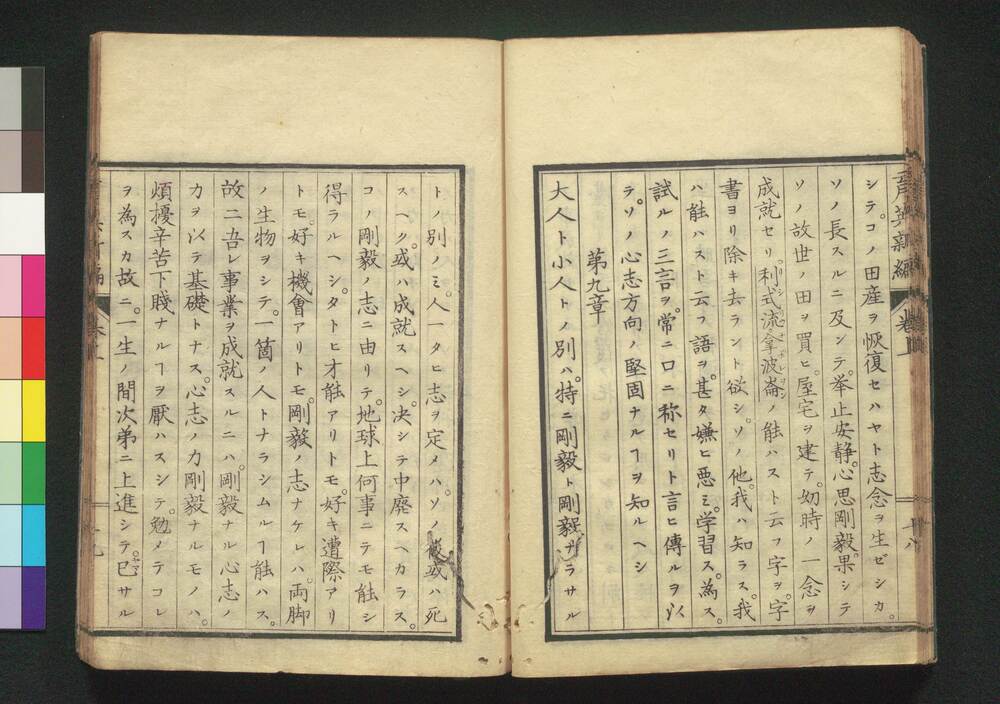 シテ。コノ田産ヲ恢復セハヤト志念ヲ生ゼシカ。
ソノ長スルニ及ンテ。挙止安静。心思剛毅。果シテ
ソノ故世ノ田ヲ買ヒ。屋宅ヲ建テ。幼時ノ一念ヲ
成就セリ。利式流拿波崙ノ能ハスト云フ字ヲ。字
書ヨリ除キ去ラント欲シ。ソノ他。我ハ知ラス。我
ハ能ハスト云フ語ヲ。甚タ嫌ヒ悪ミ。学習ス。為ス。
試ルノ三言ヲ。常ニ口ニ称セリト言ヒ傳ルヲ以
テ。ソノ心志方向ノ堅固ナルヿヲ知ルヘシ
第九章
大人ト小人トノ別ハ。特ニ剛毅ト剛毅ナラサル
トノ別ノミ。人一タヒ志ヲ定メハ。ソノ後或ハ死
スヘク。或ハ成就スヘシ。決シテ中廢スヘカラス。
コノ剛毅ノ志ニ由リテ。地球上何事ニテモ能シ
得ラルヘシ。タトヒ才能アリトモ。好キ遭際アリ
トモ。好キ機會アリトモ。剛毅ノ志ナケレハ。両脚
ノ生物ヲシテ。一箇ノ人トナラシムルヿ能ハス。
故ニ吾レ事業ヲ成就スルニハ。剛毅ナル心志ノ
力ヲ以テ基礎トナス。心志ノ力剛毅ナルモノハ。
煩擾辛苦下賤ナルヿヲ厭ハスシテ。勉メテコレ
ヲ為スカ故ニ。一生ノ間次第ニ上進シテ。已サル